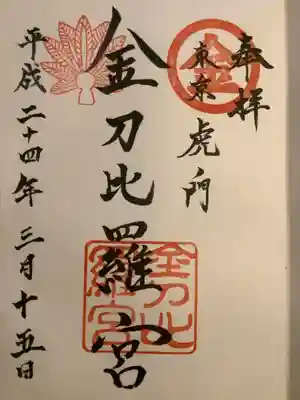 奉拝
東京虎門
金刀比羅宮
平成二十四年三月十五日
金
金刀比
羅宮